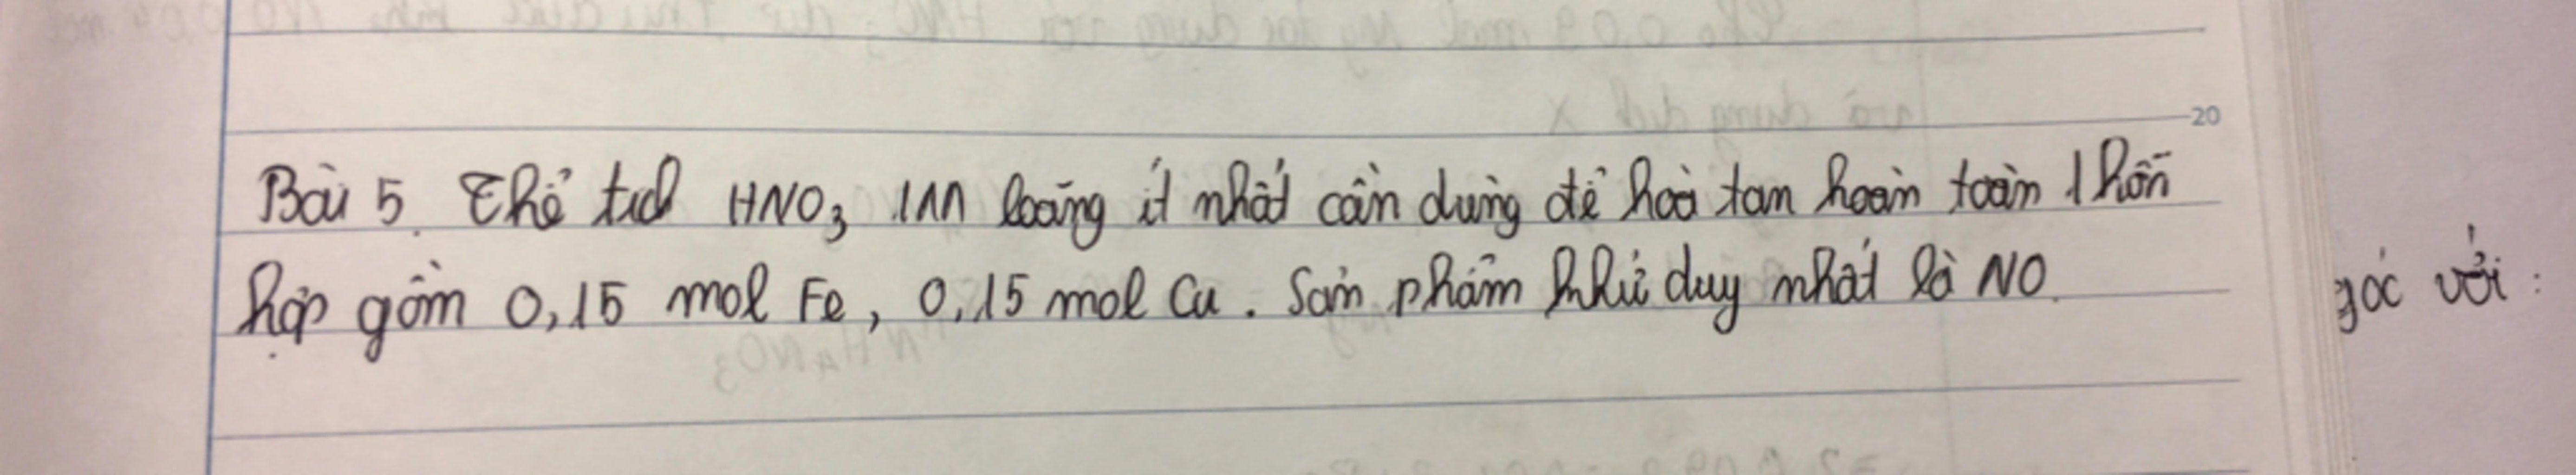 20
Bài 5. Thể tích HNO3 1M loãng ít nhất cần dùng để hoà tan hoàn toàn 1 hỗn
hợp gồm 0,15 mol Fe, 0,15 mol Cu. Sản phẩm khử duy nhất là NO.
góc với: